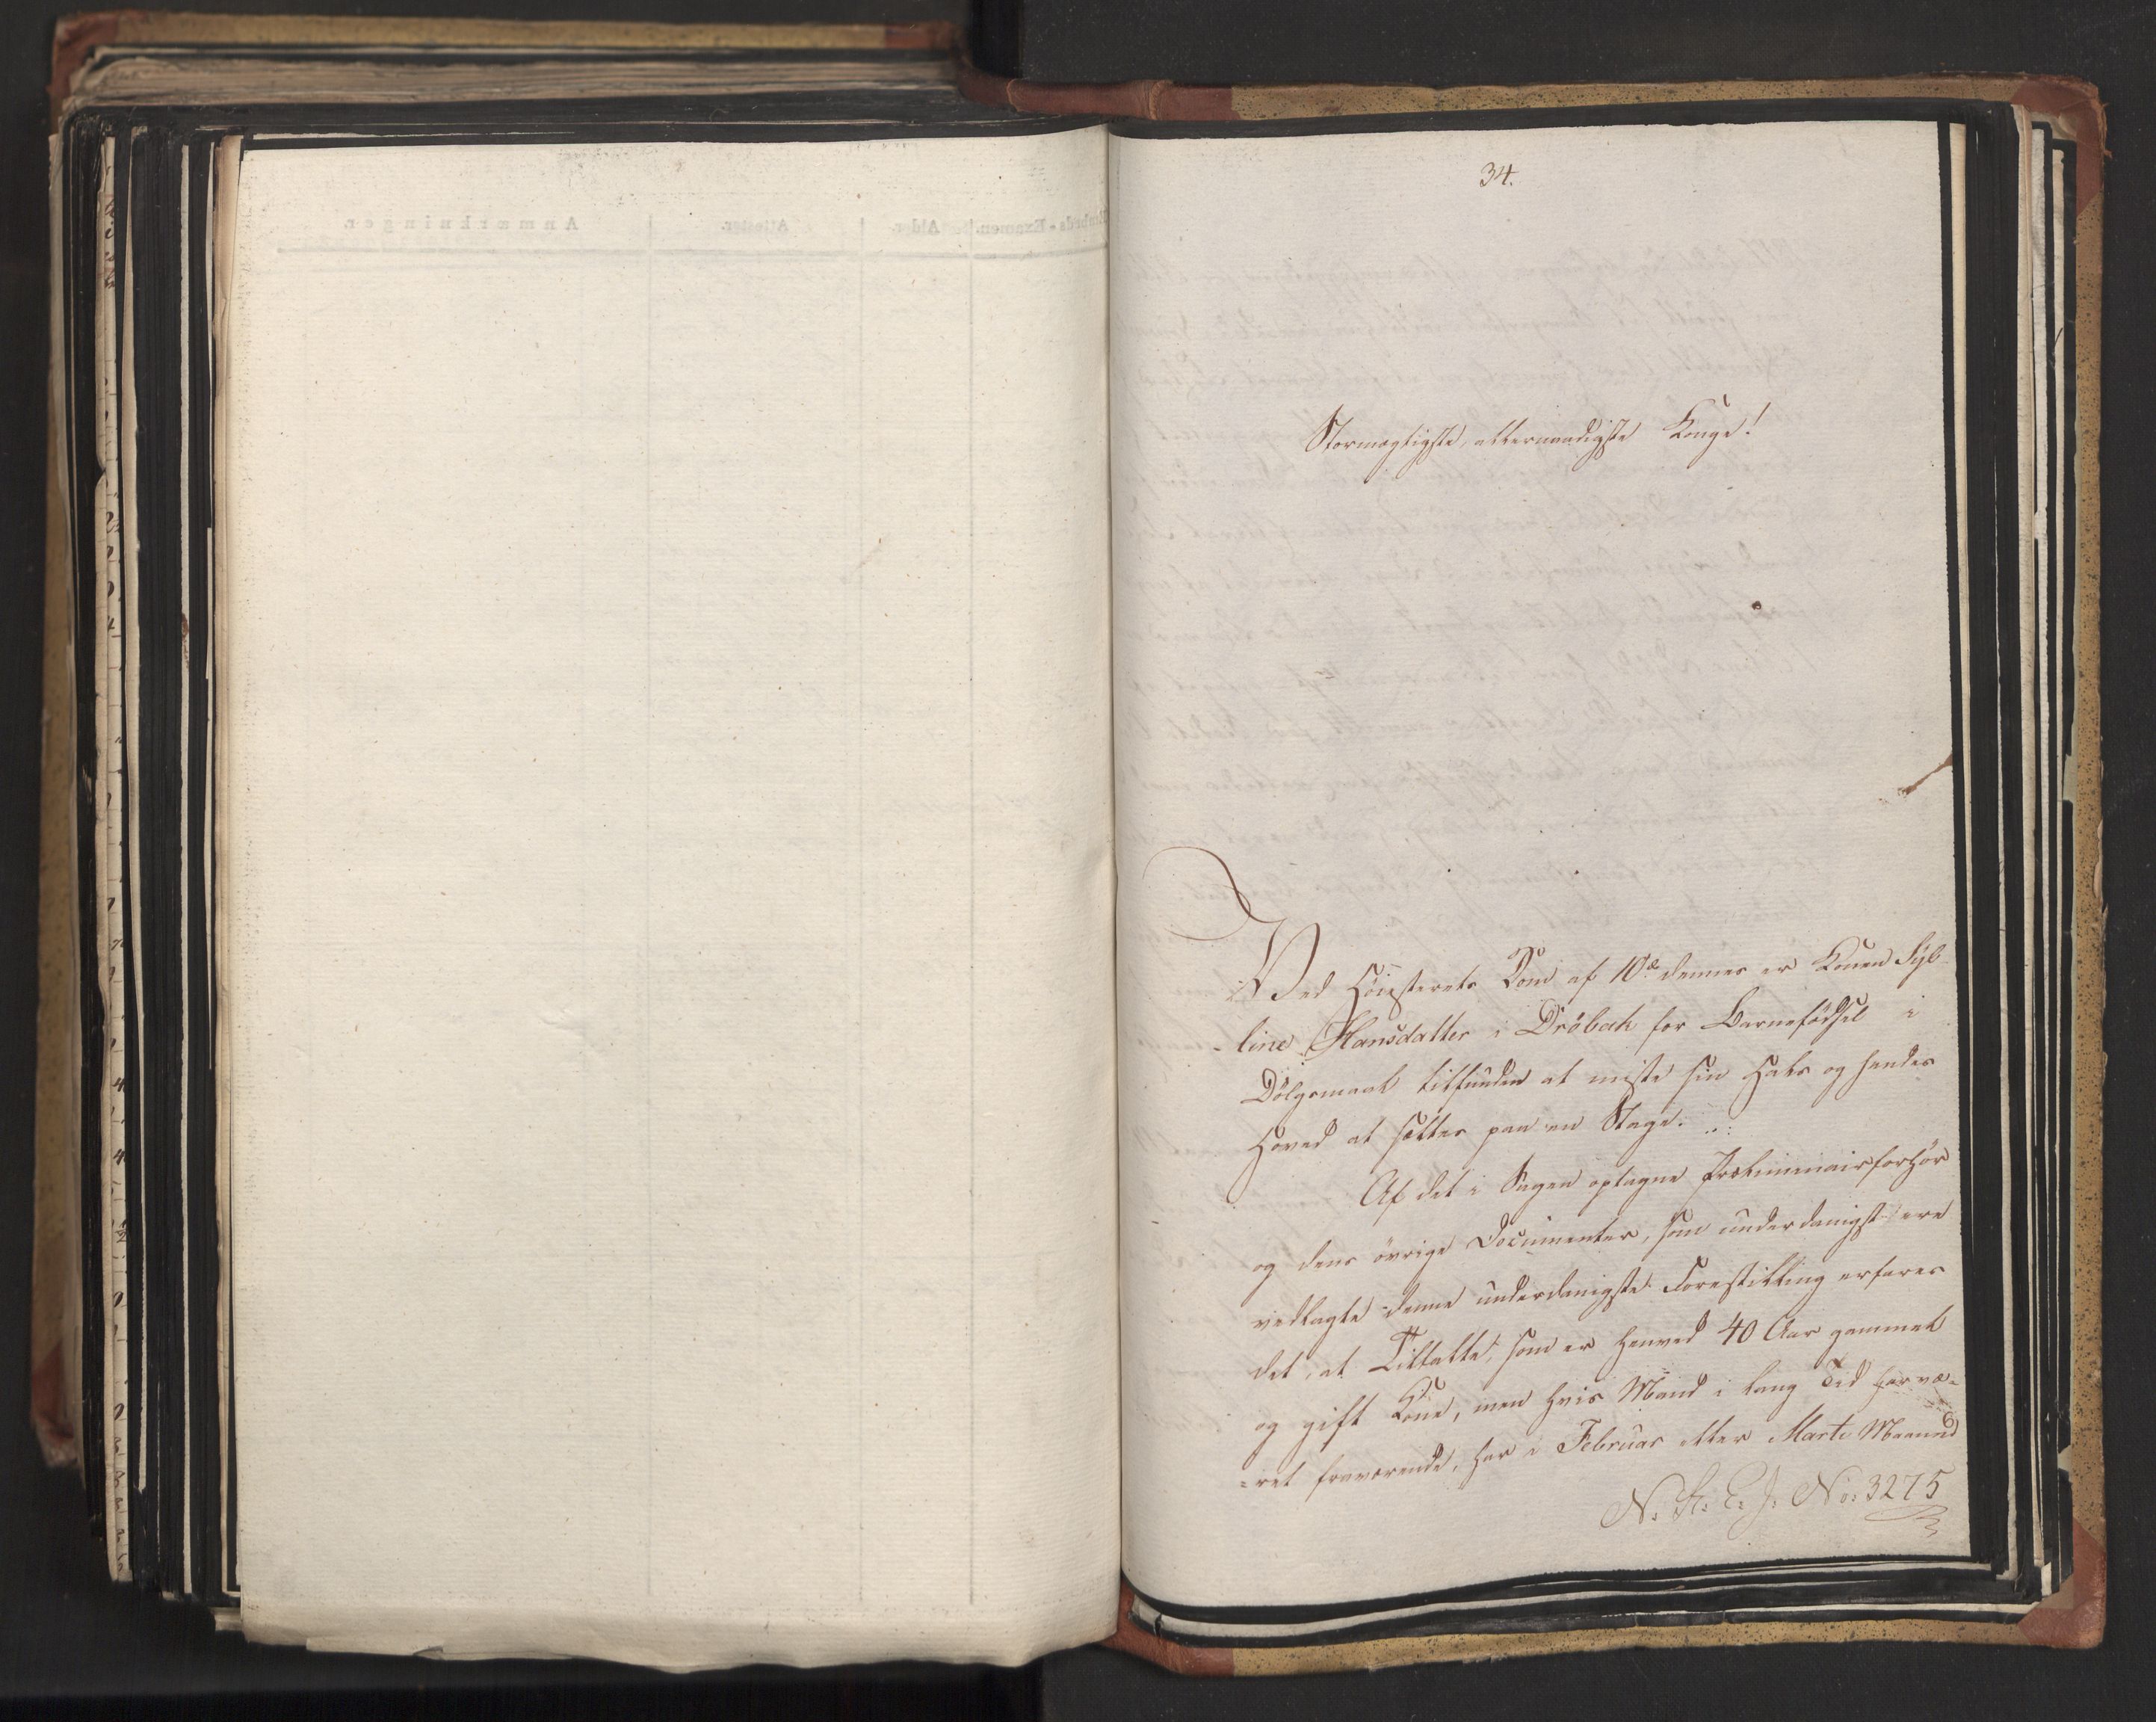 34.
Stormægtigste, allernaadigste Konge!
Ved Høiesterets Dom af 10de dennes er Konen Syl-
-line Hansdatter i Dröbak for Barnefödsel i
Dölgsmaal tilfunden at miste sin Hals og hendes
Hoved at sættes paa en Stage.
Af det i Sagen optagne Præliminairforhör
og dens övrige Documenter, som underdanigst ere
vedlagte denne underdanigste Forestilling erfares
det, at Tiltalte, som er henved 40 Aar gammel
og gift Kone, men hvis Mand i lang Tid har væ-
-ret fraværende, har i Februar eller Marts Maaned
N. R. C. J. No: 3275
Anmærkninger.
Attester.
Alder.
Embeds-Examen.